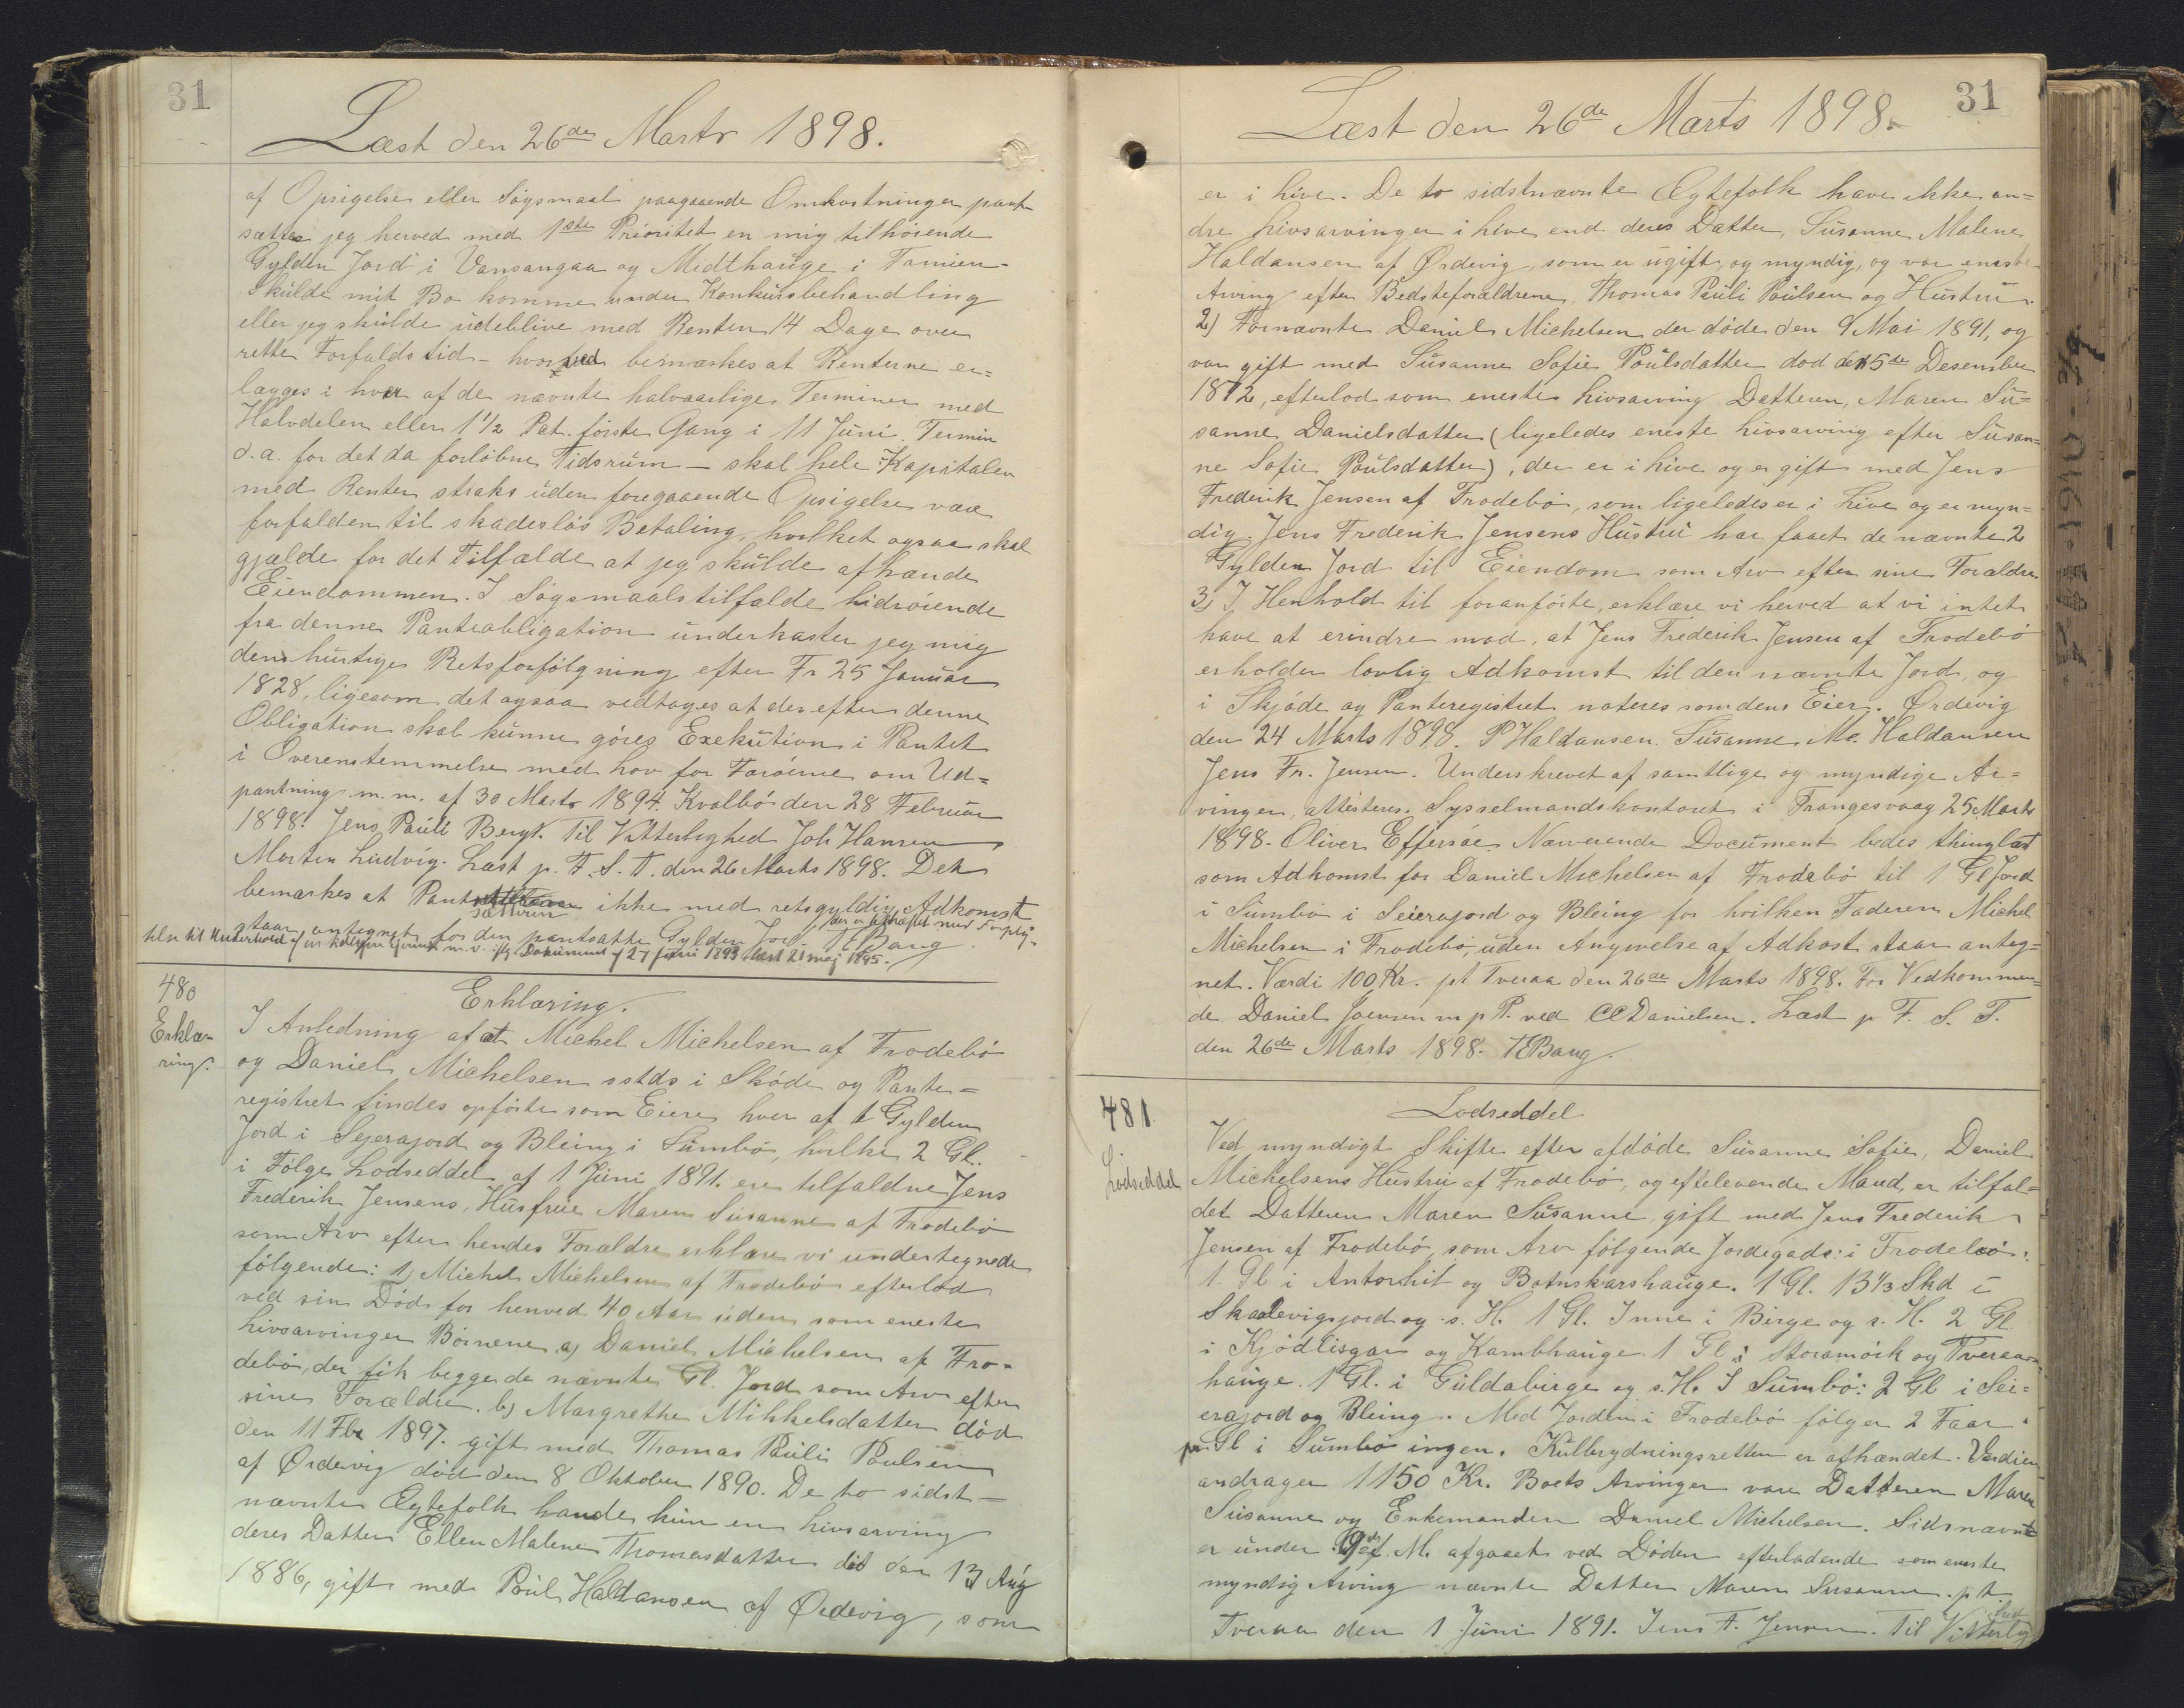 31
Læst den 26de Marts 1898.
af Opsigelse eller Søgsmaal paagaaende Omkostninger pant-
sætter jeg herved med 1ste Prioritet en mig tilhørende
Gylden Jord i Vansangaa og Midthauge i Famien-
Skulde mit Bo komme under Konkursbehandling
eller jeg skulde udeblive med Renten 14 Dage over
rette Forfaldstid – hvorved bemærkes at Renterne er=
lægges i hver af de nævnte halvaarlige Terminer med
Halvdelen eller 1 1/2 Pct. første Gang i 11 Juni Termin
d.a. for det da forløbne Tidsrum – skal hele Kapitalen
med Renter straks uden foregaaende Opsigelse være
forfalden til skadesløs Betaling, hvilket ogsaa skal
gjælde for det Tilfælde at jeg skulde afhænde
Eiendommen. I Søgsmaalstilfælde hidrørende
fra denne Panteobligation underkaster jeg mig
den hurtige Retsforfølgning efter Fr 25 Januar
1828, ligesom det ogsaa vedtages at der efter denne
Obligation skal kunne gøres Exekution i Pantet
i Overenstemmelse med Lov for Færøerne om Ud=
pantning m.m. af 30 Marts 1894. Kvalbø den 28 Februar
1898. Jens Pauli Berg. Til Vitterlighed Joh Hansen
Morten Ludvig. Læst p. F. S. T. den 26 Marts 1898. Det
bemærkes at Pantsætteren ikke med retsgyldig Adkomst
staar antegnet for den pantsatte Gylden Jord, der er behæftet med Forplig-
telse til Underhold af m. v. jfg Dokument af 27 Juni 1893 læst 21 maj 1895. Bang
480
Erklæ-
ring.
Erklæring.
I Anledning af at Michel Michelsen af Frodebø
og Daniel Michelsen sstds i Skøde og Pante=
registret findes opførte som Eiere hver af 1 Gylden
Jord i Sejerajord og Bleing i Sumbø, hvilke 2 Gl.
i Følge Lodseddel af 1 Juni 1891. ere tilfaldne Jens
Frederik Jensens, Husfrue Maren Susanne af Frodebø
som Arv efter hendes Forældre erklære vi undertegnede
følgende: 1) Michel Michelsen af Frodebø efterlod
ved sin Død for henved 40 Aar siden som eneste
Livsarvinger Børnene a) Daniel Michelsen af Fro=
debø, der fik begge de nævnte Gl. Jord som Arv efter
sine Forældre. b) Margrethe Mikkelsdatter død
den 11 Fbr 1897. gift med Thomas Pauli Poulsen
af Ørdevig død den 8 Oktober 1890. De to sidst-
nævnte Ægtefolk havde kun en Livsarving
deres Datter Ellen Malene Thomasdatter død den 13 Aug
1886, gift med Poul Haldansen af Ørdevig, som
31
Læst den 26de Marts 1898.
er i Live. De to sidstnævnte Ægtefolk have ikke an=
dre Livsarvinger i Live end deres Datter, Susanne Malene
Haldansen af Ørdevig, som er ugift og myndig, og var eneste
Arving efter Bedsteforældrene, Thomas Pauli Poulsen og Hustru.
2) Fornævnte Daniel Michelsen der døde den 9 Mai 1891, og
var gift med Susanne Sofie Poulsdatter død den 5te Desember
1872, efterlod som eneste Livsarving Datteren, Maren Su=
sanne Danielsdatter (ligeledes eneste Livsarving efter Susan=
ne Sofie Poulsdatter), der er i Live og er gift med Jens
Frederik Jensen af Frodebø, som ligeledes er i Live og er myn=
dig. Jens Frederik Jensens Hustru har faaet de nævnte 2
Gylden Jord til Eiendom som Arv efter sine Forældre.
3) I Henhold til foranførte, erklære vi herved at vi intet
have at erindre mod, at Jens Frederik Jensen af Frodebø
erholder lovlig Adkomst til den nævnte Jord, og
i Skjøde og Panteregistret noteres som dens Eier. Ørdevig
den 24 Marts 1898. P Haldansen. Susanne M. Haldansen
Jens Fr. Jensen. Underskrevet af samtlige og myndige Ar=
vinger, attesteres. Sysselmandskontoret i Trangesvaag 25 Marts
1898. Oliver Effersøe. Nærværende Document bedes thinglæst
som Adkomst for Daniel Michelsen af Frodebø til 1 Gl Jord
i Sumbø i Seierajord og Bleing for hvilken Faderen Michel
Michelsen i Frodebø, uden Angivelse af Adkost staar anteg=
net. Værdi 100 Kr. pt Tveraa den 26de Marts 1898. For Vedkommen=
de Daniel Joensen m p P. ved CC Danielsen. Læst p F. S. T.
den 26de Marts 1898. Bang.
481
Lodseddel
Lodseddel
Ved myndigt Skifte efter afdøde Susanne Sofie, Daniel
Michelsens Hustru af Frodebø, og efterlevende Mand, er tilfal=
det Datteren Maren Susanne, gift med Jens Frederik
Jensen af Frodebø, som Arv følgende Jordegods: i Frodebø:
1. Gl i Antorhit og Botnskarshauge. 1 Gl. 13 1/3 Skd i
Skaalevigsjord og s. H. 1 Gl. Inne i Birge og s. H. 2 Gl.
i Kjødlisgar og Kambhauge. 1 Gl i Storamörk og Tveraa-
hauge. 1 Gl. i Guldabirge og s. H. I Sumbø: 2 Gl i Sei=
erajord og Bleing. Med Jorden i Frodebø følger 2 Faar
pr. Gl i Sumbø ingen. Kulbrydningsretten er afhændet. Værdien
andrager 1150 Kr. Boets Arvinger vare Datteren Maren
Susanne og Enkemanden Daniel Michelsen. Sidsnævnte
er under 9de f. M. afgaaet ved Døden efterladende som eneste
myndig Arving nævnte Datter Maren Susanne. p t.
Tveraa den 1 Juni 1891. Jens F. Jensen. Til Vitterlighed